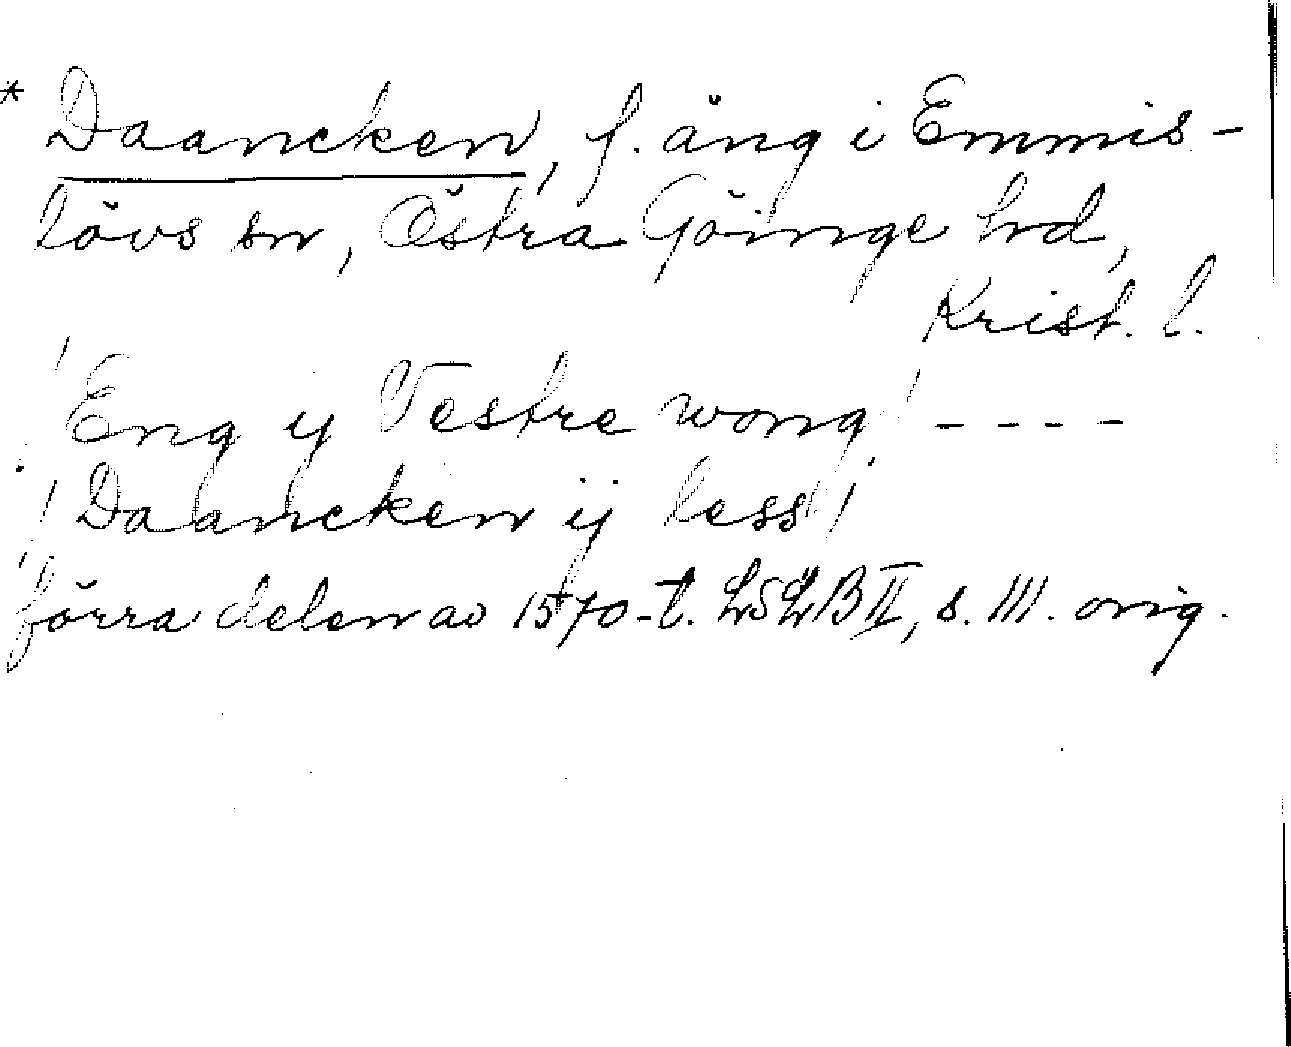 * Daancken, f. äng i Emmis-
lövs sn, Östra Göinge hd,
Krist. l.
'Eng y Vestre wong' ----
'Daancken ij less'
förra delen av 1570-t. LSLB II, s. 111. orig.